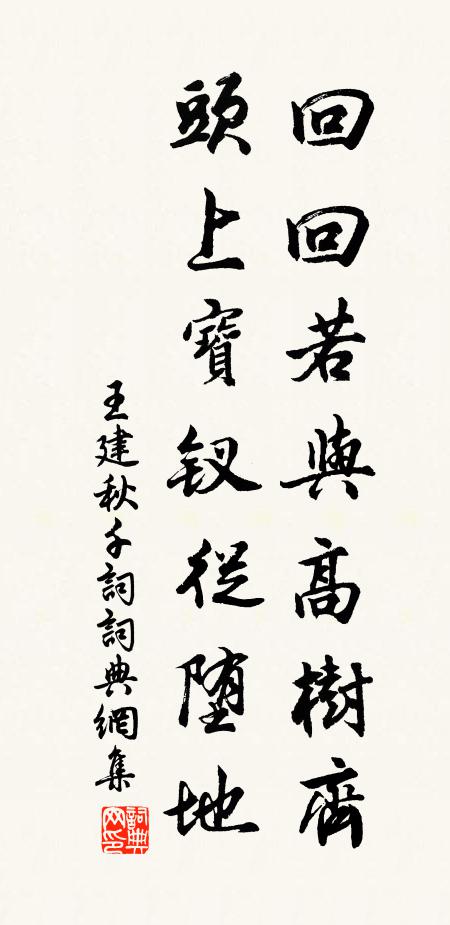 回回若與高樹齊
頭上寶釵從墮地
王建秋千詞詞典網集
詞典網印